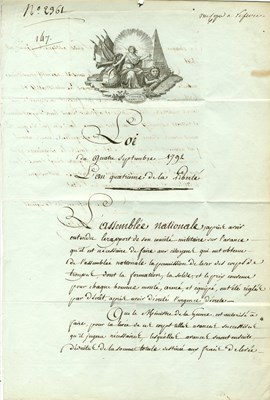 N.° 2361
147.
Loi
du quatre Septembre 1792
L'an quatrième de la Liberté
L'assemblée nationale, après avoir
entendu le rapport de son comité militaire sur l'avance
qu'il est nécessaire de faire aux citoyens qui ont obtenu
de l'assemblée nationale la permission de lever des corps de
troupes dont la formation, la solde, et le prix convenu
pour chaque homme monté, armé, et équipé, ont été réglés
par décret, après avoir décrété l'urgence décrète
Que le Ministre de la guerre, est autorisé à
faire, pour la levée de ces corps telles avances successives
qu'il jugera nécessaires, lesquelles avances seront ensuite
déduites de la somme totale affectée aux frais de levée